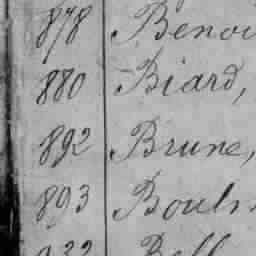 878 Benoi
880 Biard,
892 Brune,
893 Bouln
932 Bell